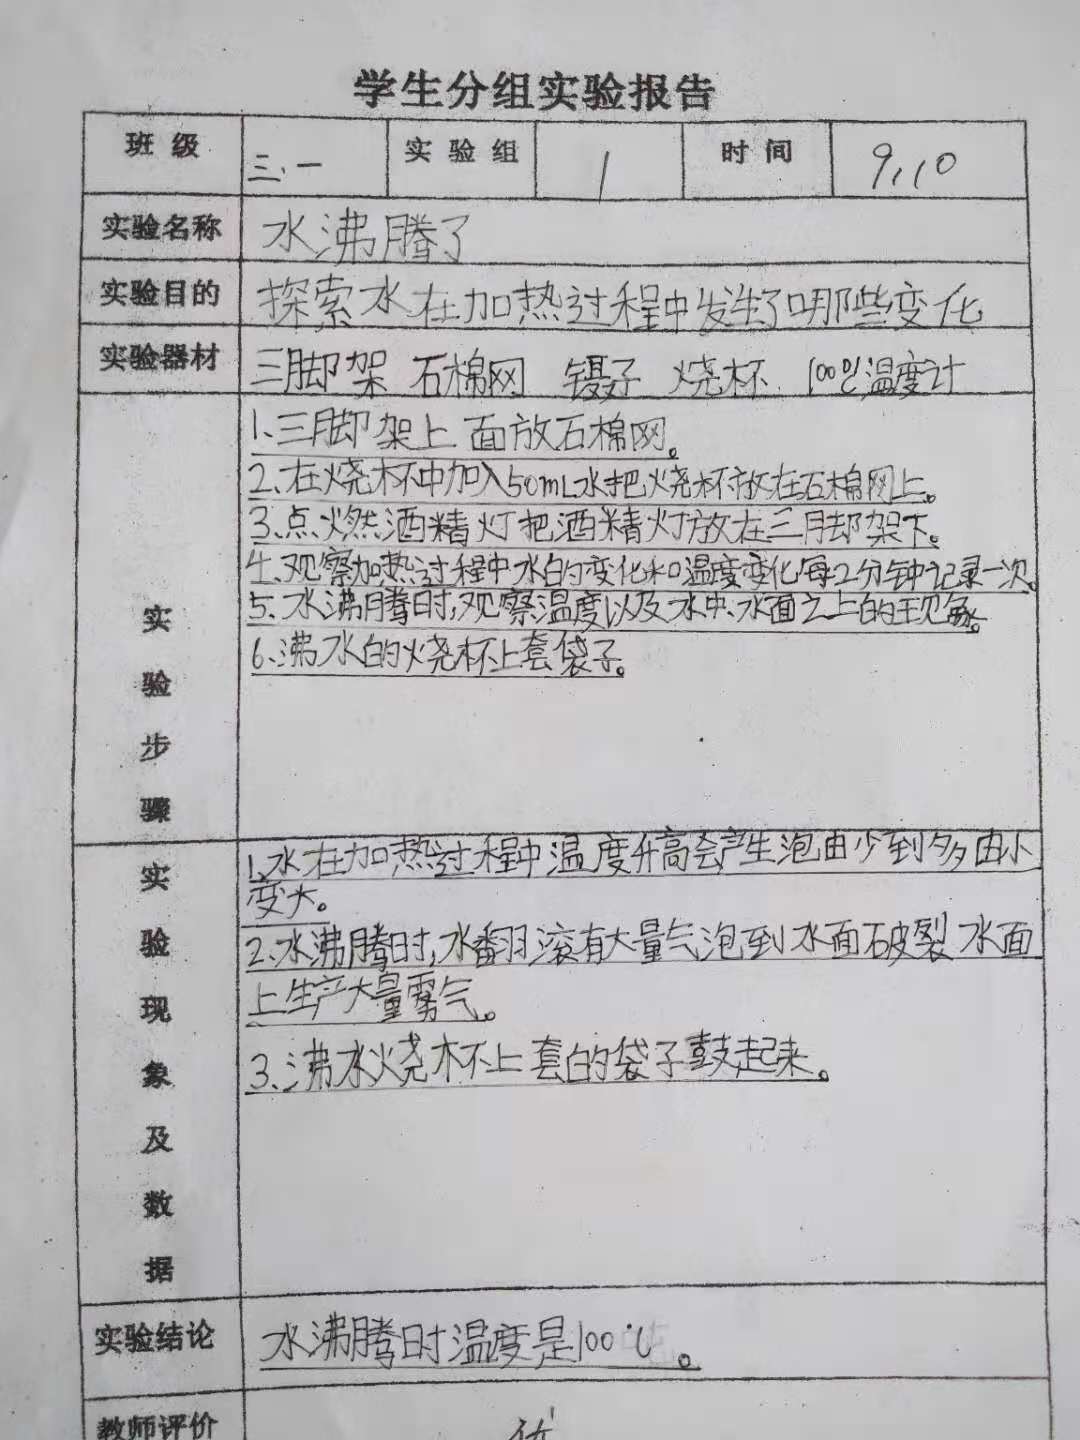 学生分组实验报告
班级 三、一 实验组 1 时间 9.10
实验名称 水沸腾了
实验目的 探索水在加热过程中发生了哪些变化
实验器材 三脚架 石棉网 镊子 烧杯 100℃温度计
实验步骤
1、三脚架上面放石棉网。
2、在烧杯中加入50mL水把烧杯放在石棉网上。
3、点燃酒精灯把酒精灯放在三脚架下。
4、观察加热过程中水的变化和温度变化每2分钟记录一次。
5、水沸腾时,观察温度以及水中、水面之上的现象。
6、沸水的烧杯上套袋子。
实验现象及数据
1、水在加热过程中温度升高会产生泡由少到多由小
变大。
2、水沸腾时,水翻滚有大量气泡到水面破裂水面
上生产大量雾气。
3、沸水烧杯上套的袋子鼓起来。
实验结论 水沸腾时温度是100℃。
教师评价 优